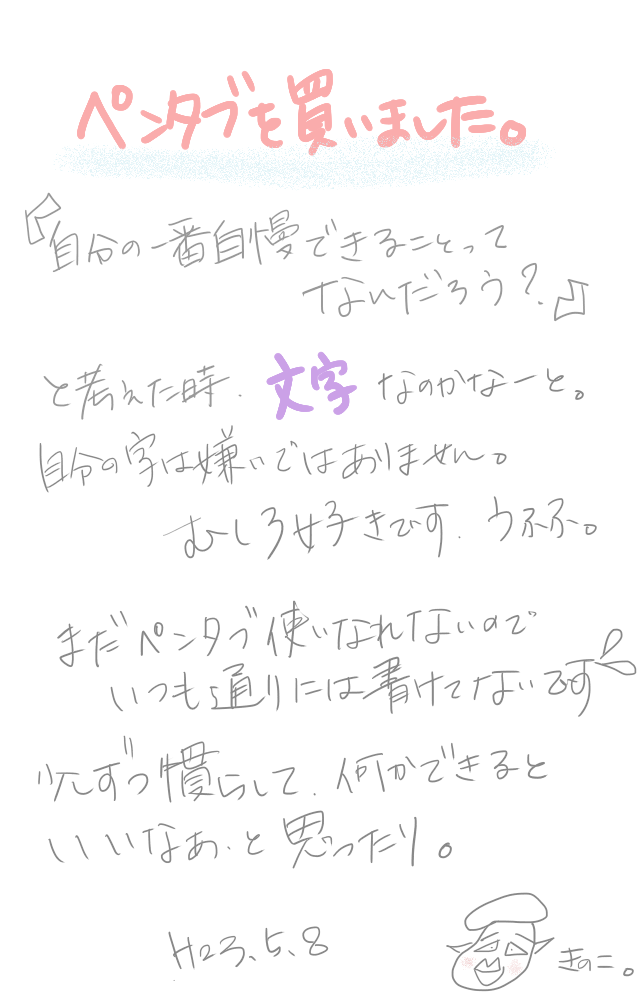 ペンタブを買いました。
『自分の一番自慢できることって
なんだろう?』
と考えた時、文字なのかなーと。
自分の字は嫌いではありません。
むしろ好きです。うふふ。
まだペンタブ使いなれないので
いつも通りには書けてないです
少しずつ慣らして、何かできると
いいなぁ、と思ったり。
H23.5.8
きのこ。